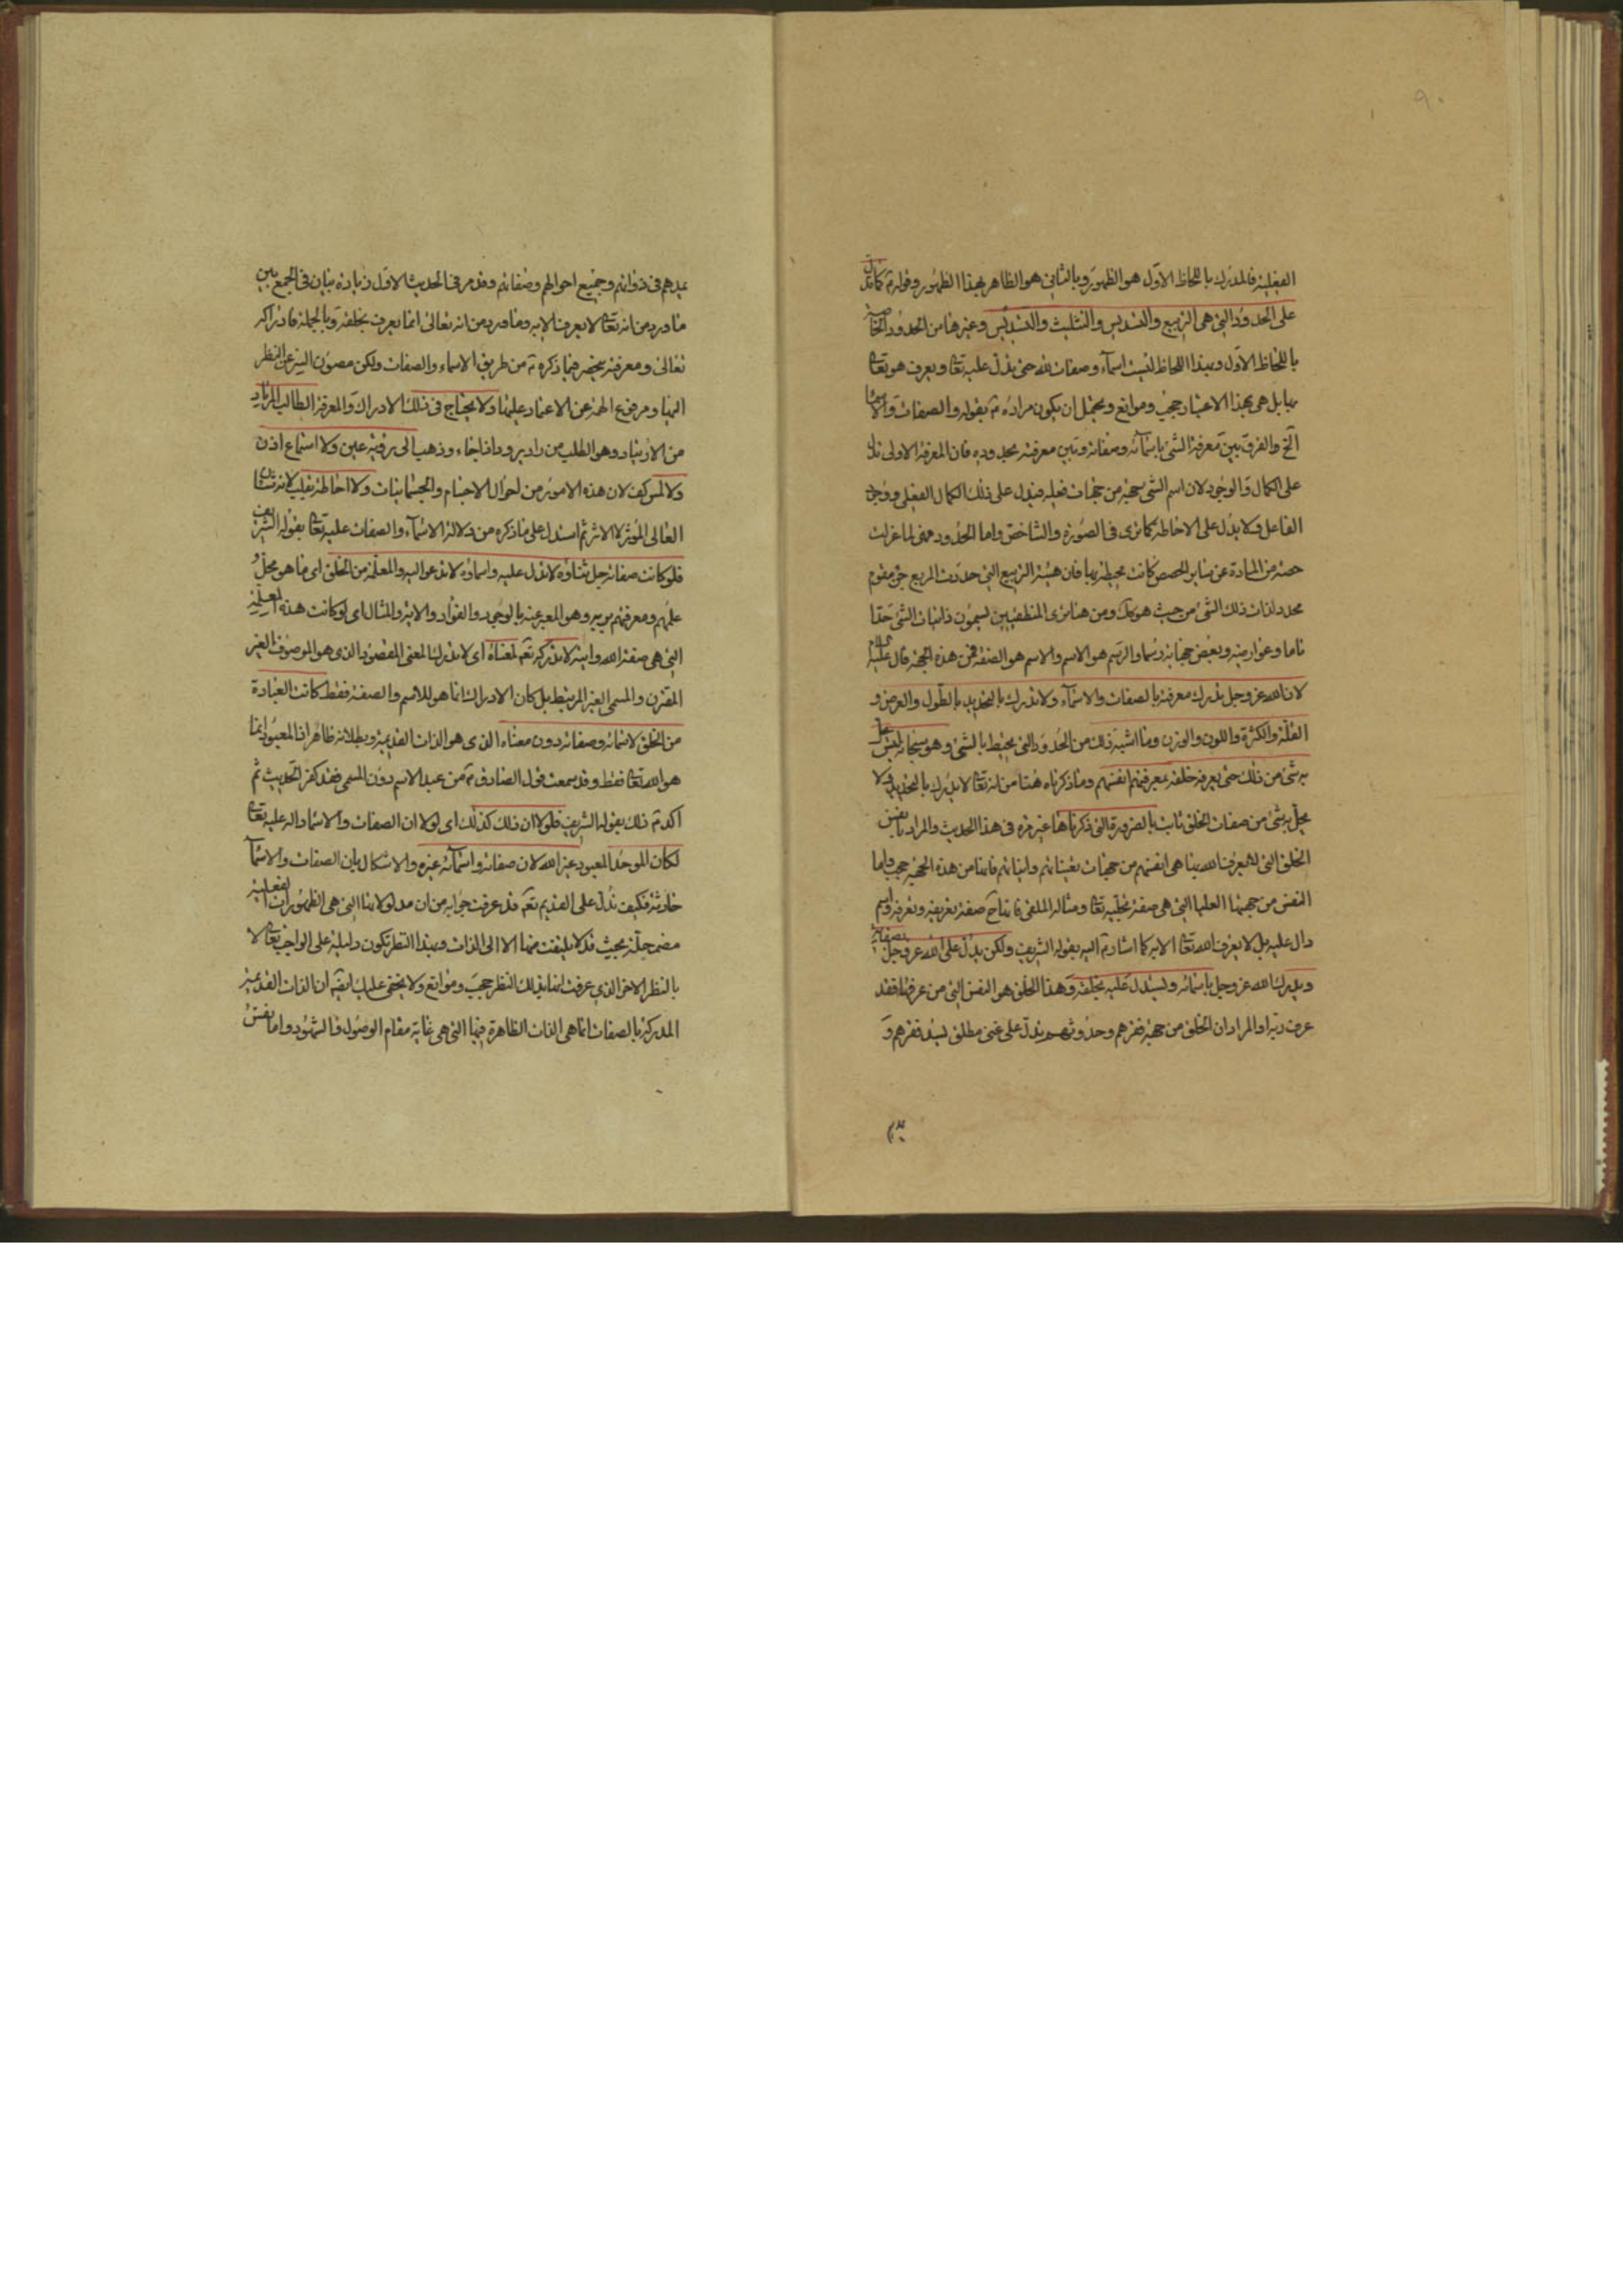 ٩٠
الفعلية فالمدرك باللحاظ الاول هو الظهور وبالثانى هو الظاهر بهذا الظهور وقوله ع كما تدل
على الحدود التى هى التربيع والتسديس والتثليث والتسديس وغيرها من الحدود الخاصة
باللحاظ الاول وبهذا اللحاظ ليست اسماء وصفات لله حتى يدل عليه تعا ويعرف هو تعا
بها بل هى بهذا الاعتبار حجب وموانع ويحتمل ان يكون مراده ع بقوله والصفات والاسما
الخ والفرق بين معرفة الشئ باسمائه وصفاته وبين معرفته بحدوده فان المعرفة الاولى تدل
على الكمال والوجود لان اسم الشئ جهة من جهات فعله فيدل على ذلك الكمال الفعلى ووجود
الفاعل ولا يدل على الاحاطة كما ترى فى الصورة والشاخص واما الحدود فهى لما عزلت
حصة من المادة عن ساير الحصص كانت محيطة بها فان هيئة التربيع التى حددت المربع حق مقوم
محدد لذات ذلك الشئ من حيث هو كك ومن هنا ترى المنطقيين يسمون ذاتيات الشئ حدا
تاما وعوارضه وبعض جهاته رسما والرسم هو الاسم والاسم هو الصفة فمن هذه الجهة قال عليه السلام
لان الله عز وجل يدرك معرفته بالصفات والاسماء ولا يدرك بالتحديد بالطول والعرض و
القلة والكثرة واللون والوزن وما اشبه ذلك من الحدود التى يحيط بالشئ وهو سبحانه ليس يحل
به شئ من ذلك حتى يعرفه خلقه بمعرفتهم انفسهم وما ذكرناه هنا من انه تعا لا يدرك بالتحديد ولا
يحل به شئ من صفات الخلق ثابت بالضرورة التى ذكرناها غير مرة فى هذا الحديث والمراد بانفس
الخلق التى لا يعرف الله بها هى انفسهم من جهات تعيناتهم وانياتهم فانها من هذه الجهة حجب واما
النفس من جهتها العليا التى هى صفة تجليه تعا ومثاله الملقى فانها ح صفة تعريفه وتعرفه واسم
دال عليه بل لا يعرف الله تعا الا به كما اشار ع اليه بقوله الشريف ولكن يدل على الله عز وجل بصفاته
ويدرك الله عز وجل باسمائه ويستدل عليه بخلقه وهذا الخلق هو النفس التى من عرفها فقد
عرف ربه او المراد ان الخلق من جهة فقرهم وحدوثهم يدل على غنى مطلق يسد فقرهم و
يمدهم
يمدهم فى ذواتهم وجميع احوالهم وصفاتهم وقد مر فى الحديث الاول زيادة بيان فى الجمع بين
ما ورد من انه تعا لا يعرف الا به وما ورد من انه تعالى انما يعرف بخلقه وبالجملة فادراكه
تعالى ومعرفته ينحصر فيما ذكره ع من طريق الاسماء والصفات ولكن مصون السر عن النظر
اليها ومرفوع الهمة عن الاعتماد عليها ولا يحتاج فى ذلك الادراك والمعرفة الطالب المرتاد
من الارتياد وهو الطلب من راد يرود اذا جاء وذهب الى رؤية عين ولا استماع اذن
ولا لمس كف لان هذه الامور من احوال الاجسام والجسمانيات ولا احاطة بقلب لانه شان
العالى المؤثر لا الاثر ثم استدل على ما ذكره من دلالة الاسماء والصفات عليه تعا بقوله الشريف
فلو كانت صفاته جل ثناؤه لا تدل عليه واسماؤه لا تدعو اليه والمعلمة من الخلق اى ما هو محل
علمهم ومعرفتهم بربهم وهو المعبر عنه بالوجود والفؤاد والاية والمثال اى لو كانت هذه المعلمة
التى هى صفة الله وايته لا تدركه تعه لمعناه اى لا تدرك المعنى المقصود الذى هو الموصوف الغير
المقترن والمسمى الغير المرتبط بل كان الادراك انما هو للاسم والصفة فقط كانت العبادة
من الخلق لاسمائه وصفاته دون معناه الذى هو الذات القديمة وبطلانه ظاهر اذ المعبود انما
هو الله تعا فقط وقد سمعت قول الصادق ع من عبد الاسم دون المسمى فقد كفر الحديث ثم
اكد ع ذلك بقوله الشريف فلولا ان ذلك كذلك اى لولا ان الصفات والاسماء دالة عليه تعا
لكان الموحد المعبود غير الله لان صفاته واسمائه غيره والاشكال بان الصفات والاسماء
حادثة فكيف تدل على القديم تعه قد عرفت جوابه من ان مدلولاتها التى هى الظهورات الفعلية
مضمحلة بحيث قد لا يلتفت منها الا الى الذات وبهذا النظر تكون دليلة على الواجب تعا لا
بالنظر الاخر الذى عرفت انها بذلك النظر حجب وموانع ولا يخفى عليك ايضا ان الذات القديمة
المدركة بالصفات انما هى الذات الظاهرة فيها التى هى غاية مقام الوصول والشهود واما نفس